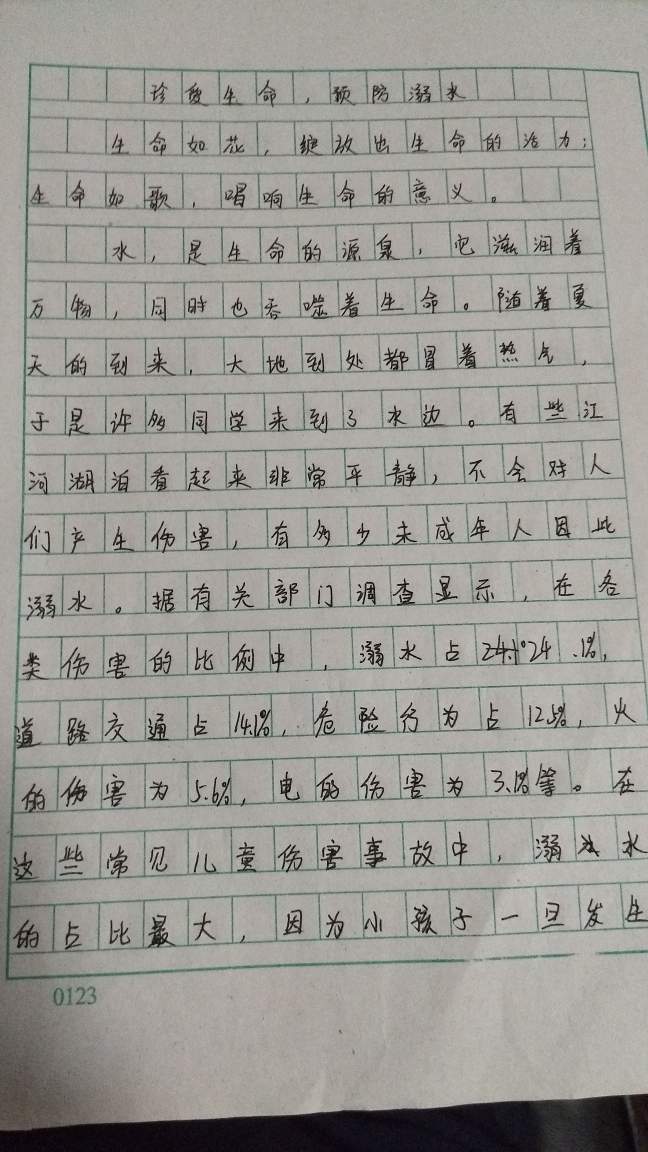 珍爱生命，预防溺水
生命如花，绽放出生命的活力；
生命如歌，唱响生命的意义。
水，是生命的源泉，它滋润着
万物，同时也吞噬着生命。随着夏
天的到来，大地到处都冒着热气，
于是许多同学来到了水边。有些江
河湖泊看起来非常平静，不会对人
们产生伤害，有多少未成年人因此
溺水。据有关部门调查显示，在各
类伤害的比例中，溺水占24.1%24.1%，
道路交通占14.1%，危险行为占12.5%，火
的伤害为5.6%，电的伤害为3.1%等。在
这些常见儿童伤害事故中，溺水水
的占比最大，因为小孩子一旦发生
0123